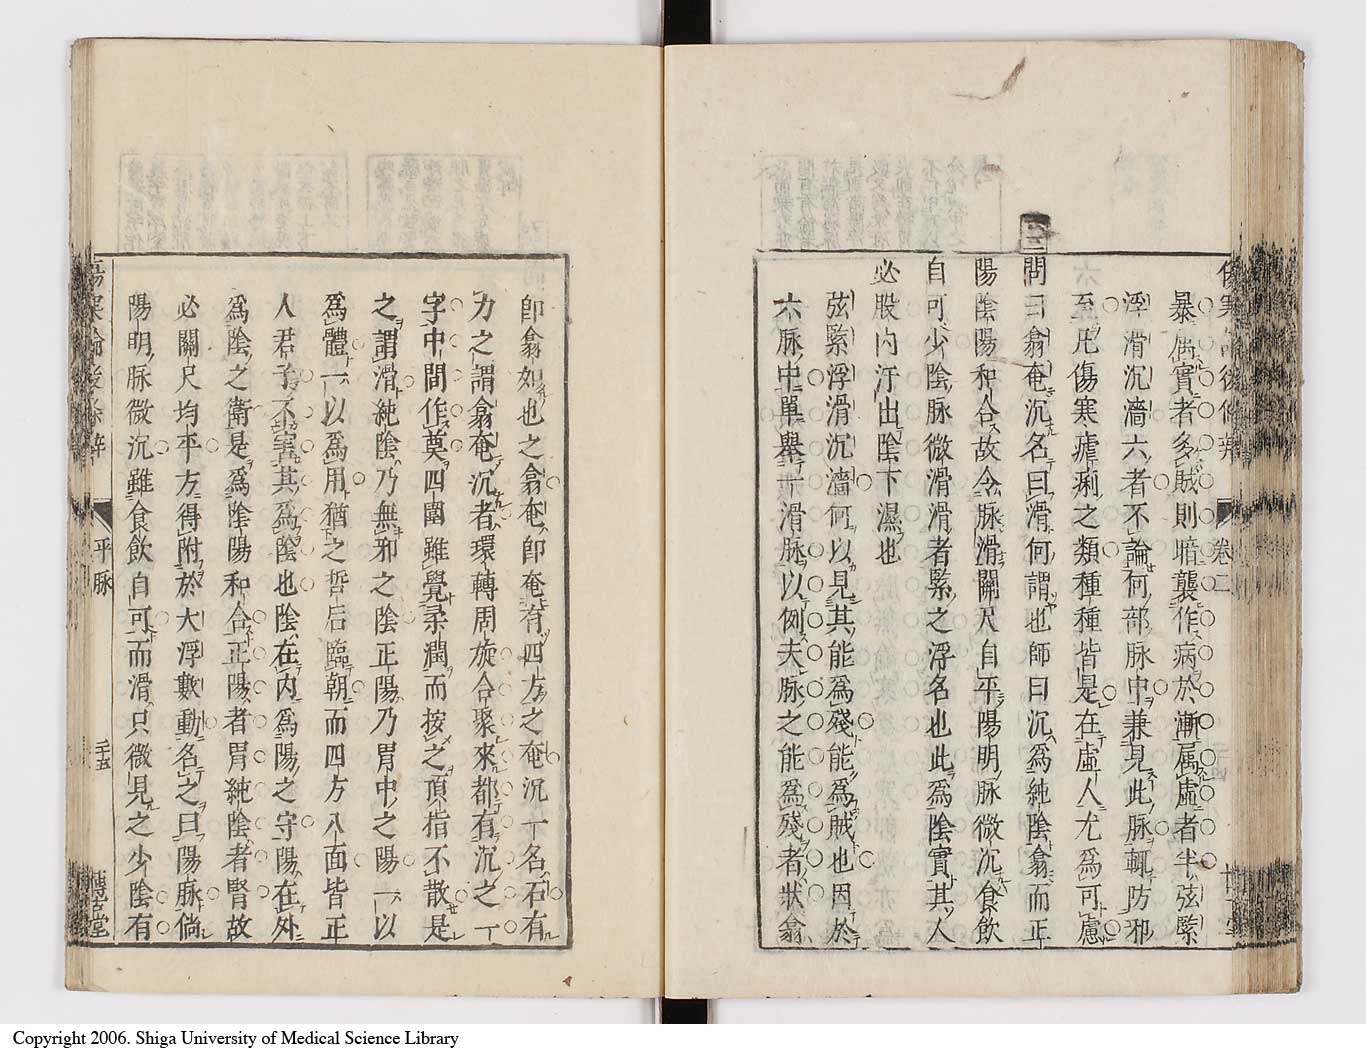 傷寒論後條辨 卷二
暴傷實者多賊則暗襲作病於漸屬虛者半弦緊
浮滑沉濇六者不論何部脉中兼見此脉輒防邪
至凡傷寒瘧痢之類種種皆是在虛人尤爲可慮
三
問曰翕奄沉名曰滑何謂也師曰沉爲純陰翕而正
陽陰陽和合故令脉滑關尺自平陽明脉微沉食飲
自可少陰脉微滑滑者緊之浮名也此爲陰實其人
必股内汗出陰下濕也
弦緊浮滑沉濇何以見其能爲殘能爲賊也因於
六脉中單舉一滑脉以例夫脉之能爲殘者狀翕
卽翕如也之翕奄卽奄有四方之奄沉一名石有
力之謂翕奄沉者環轉周旋合聚來都有沉之一
字中間作奠四圍雖覺柔潤而按之頂指不散是
之謂滑純陰乃無邪之陰正陽乃胃中之陽一以
爲體一以爲用猶之哲后臨朝而四方八面皆正
人君子不害其爲陰也陰在内爲陽之守陽在外
爲陰之衛是爲陰陽和合正陽者胃純陰者腎故
必關尺均平方得附於大浮數動名之曰陽脉倘
陽明脉微沉雖食飲自可而滑只微見之少陰有
傷寒論後條辨 平脉 二十五 堂